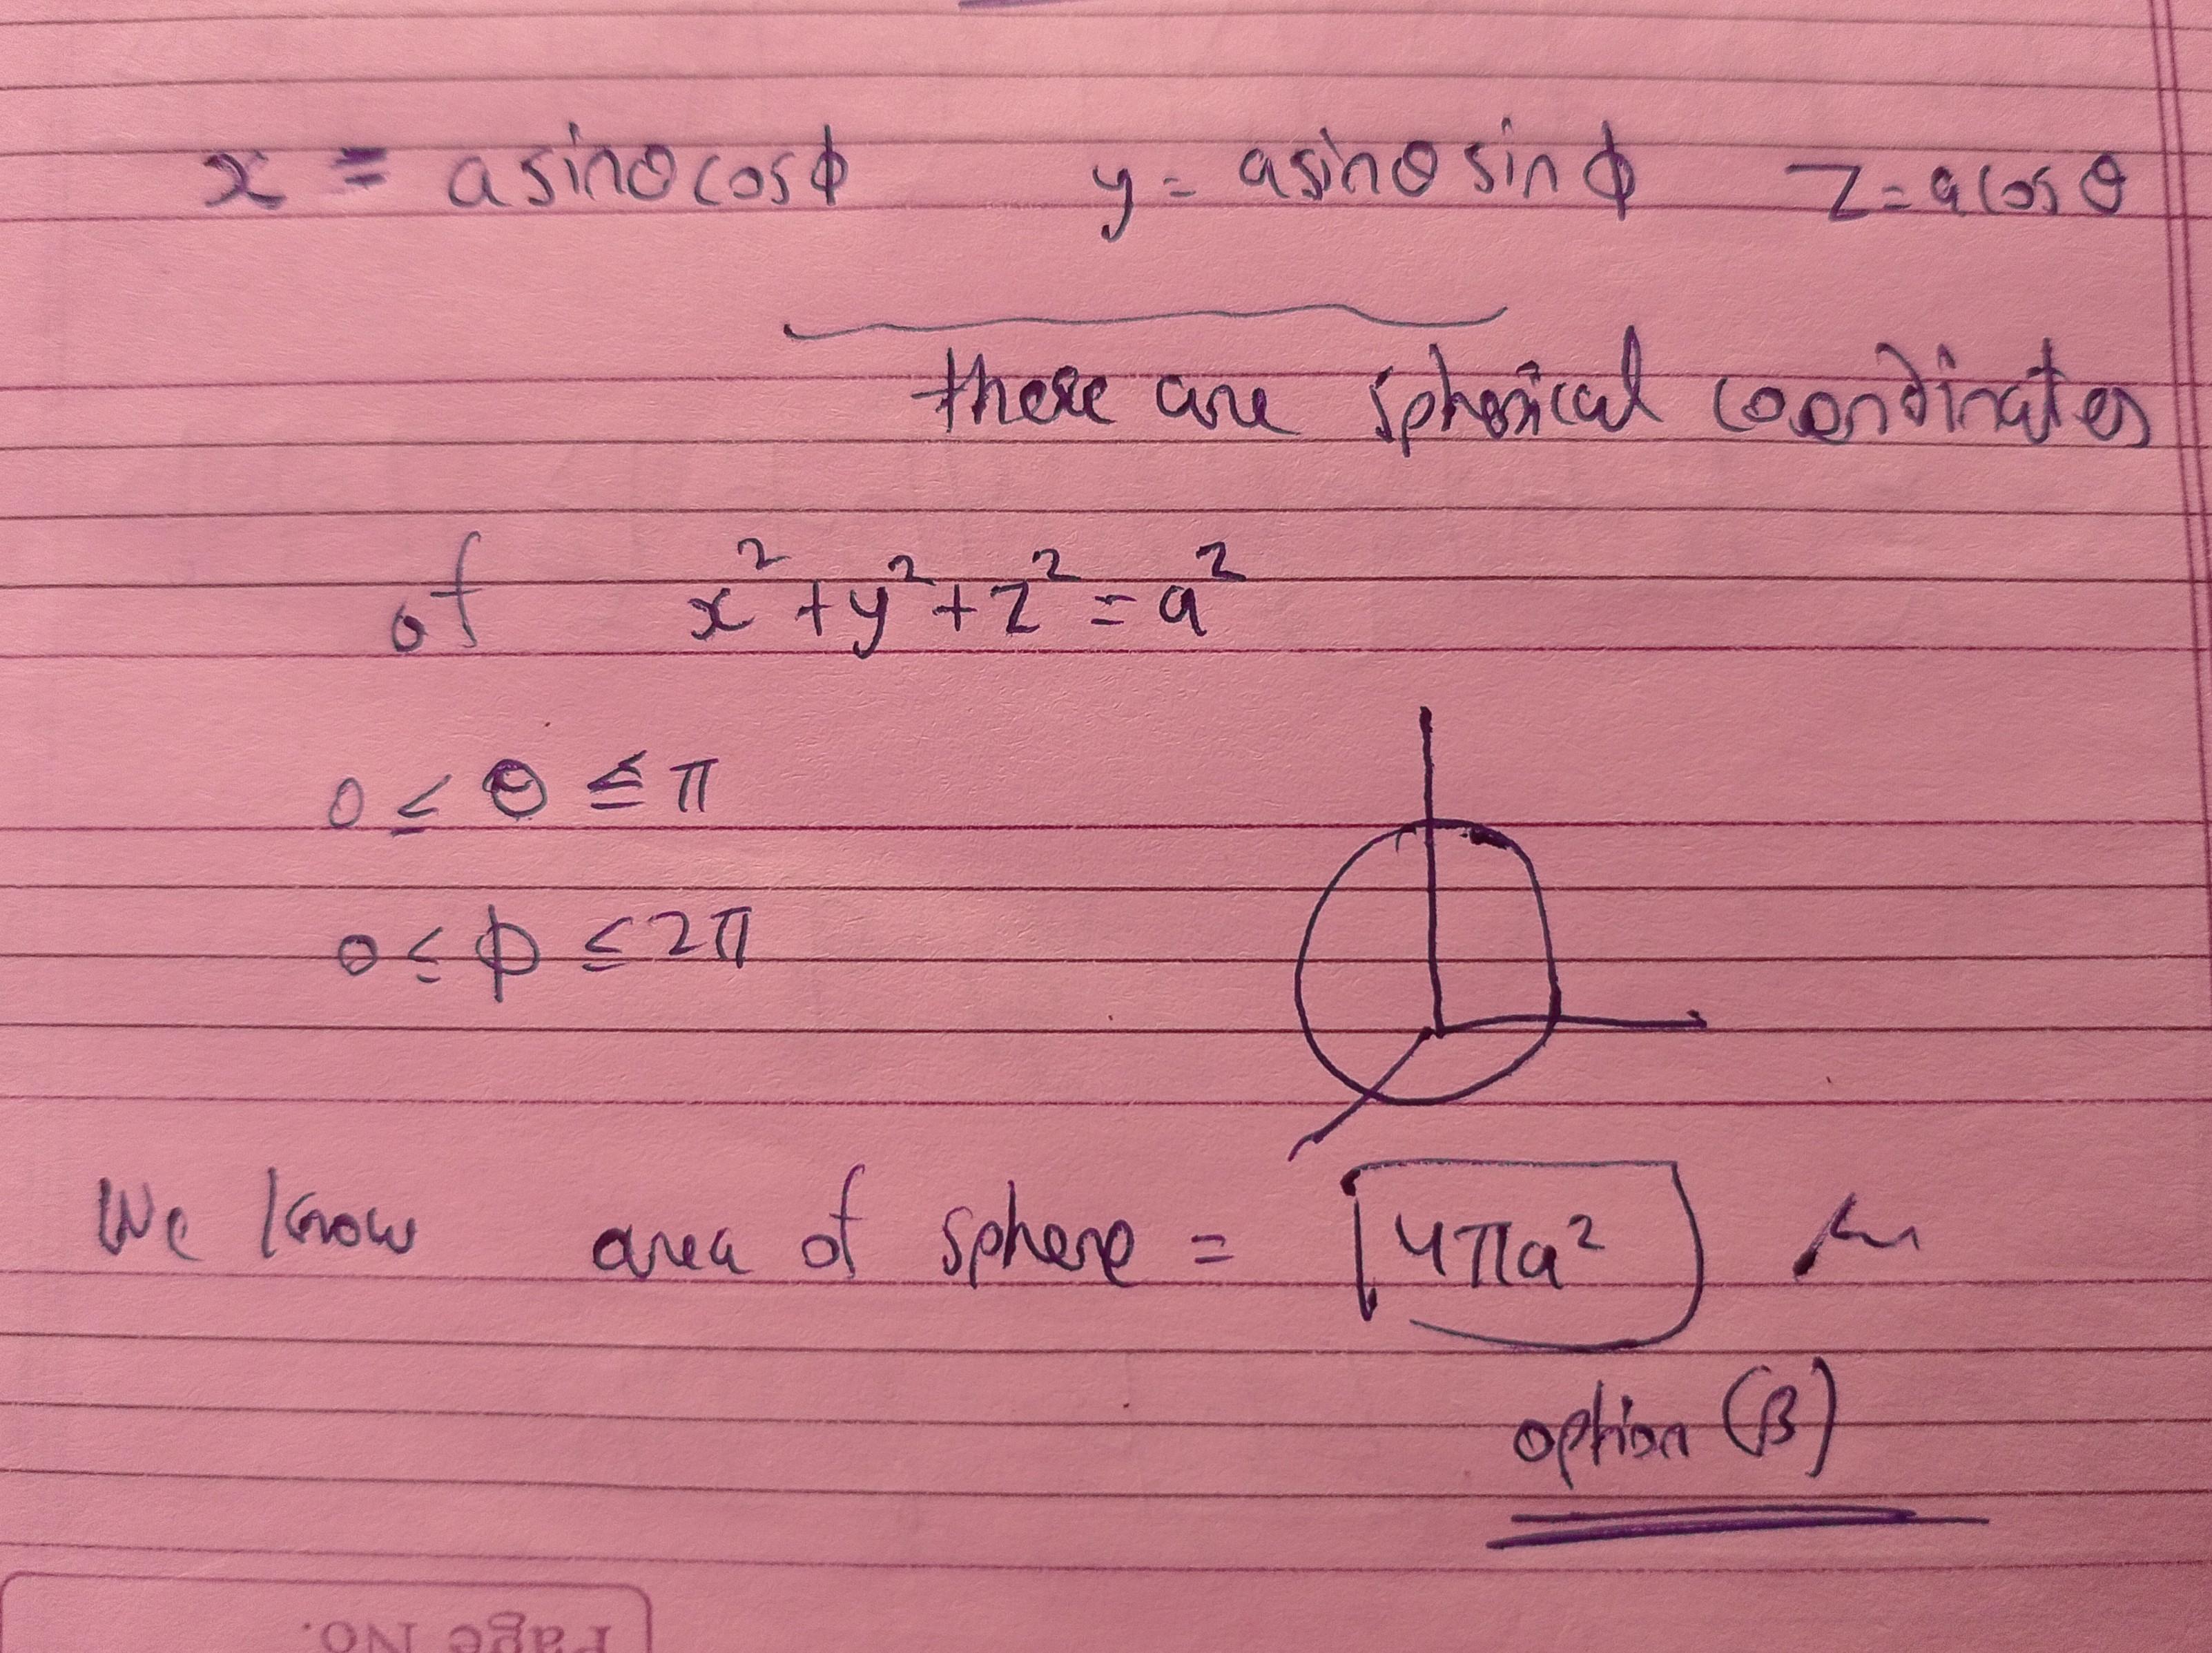 x = a sinθ cosϕ y = a sinθ sin ϕ z = a cos θ
these are spherical coordinates
of x² + y² + z² = a²
0 ≤ θ ≤ π
0 ≤ ϕ ≤ 2π
We know area of sphere = 4πa²
option (B)
Page No.